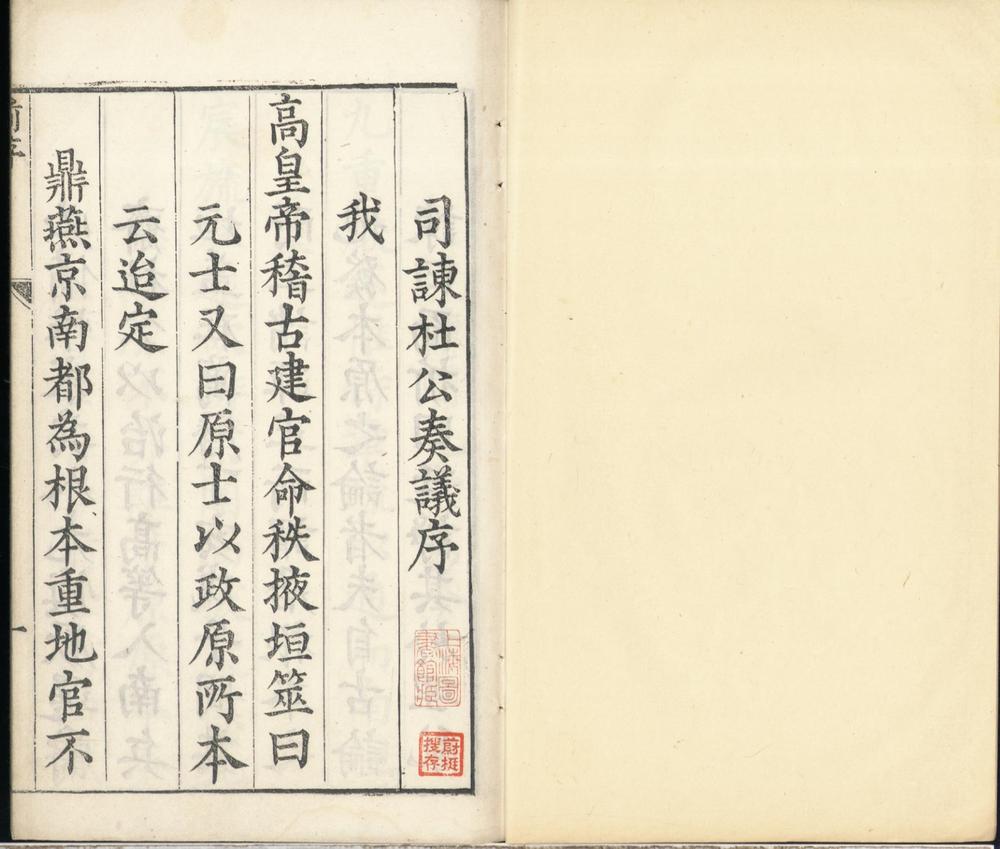 司諫杜公奏議序
我
高皇帝稽古建官命秩掖垣筮曰
元士又曰原士以政原所本
云迨定
鼎燕京南都為根本重地官不
上海圖
書館藏